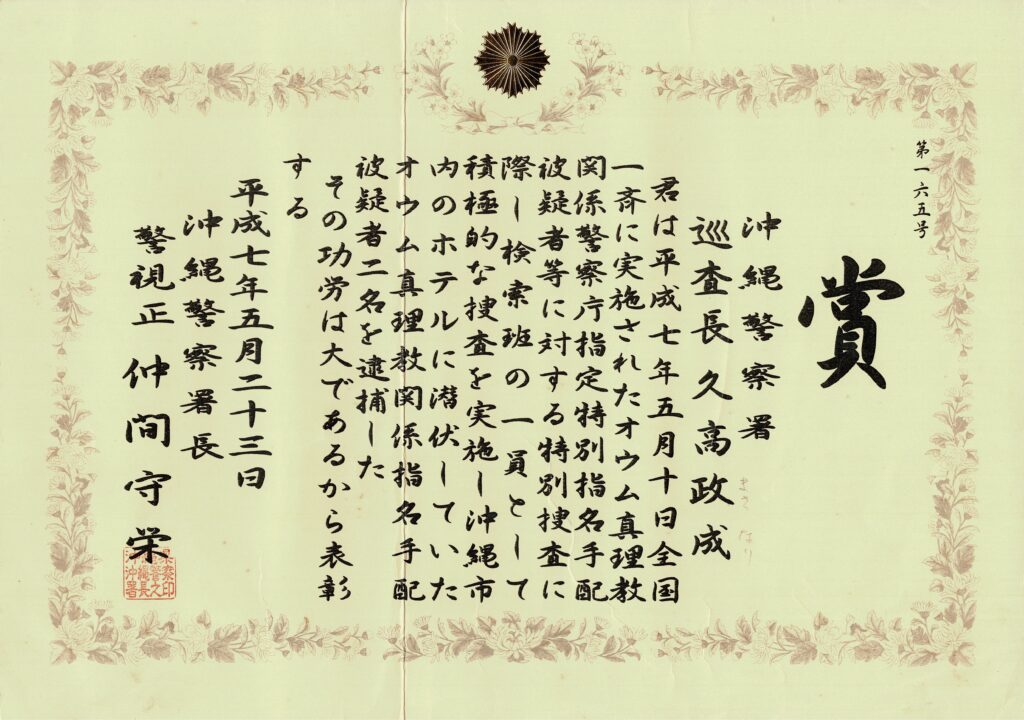 第一六五号
賞
沖縄警察署
巡査長 久高政成
まさ なり
君は平成七年五月十日全国
一斉に実施されたオウム真理教
関係警察庁指定特別指名手配
被疑者等に対する特別捜査に
際し検索班の一員として
積極的な捜査を実施し沖縄市
内のホテルに潜伏していた
オウム真理教関係指名手配
被疑者二名を逮捕した
その功労は大であるから表彰
する
平成七年五月二十三日
沖縄警察署長
警視正 仲間守栄